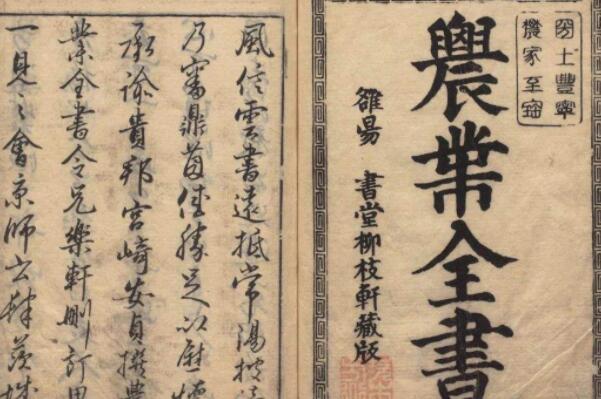 邦土豊寧
農家至寶
農業全書
雒昜 書堂柳枝軒藏版
風信雲書遠抵常陽披
乃審鼎茵佳勝足以慰
承諭貴邦宮崎安貞撰農
業全書令兄樂軒刪訂
一見之會京師書肆